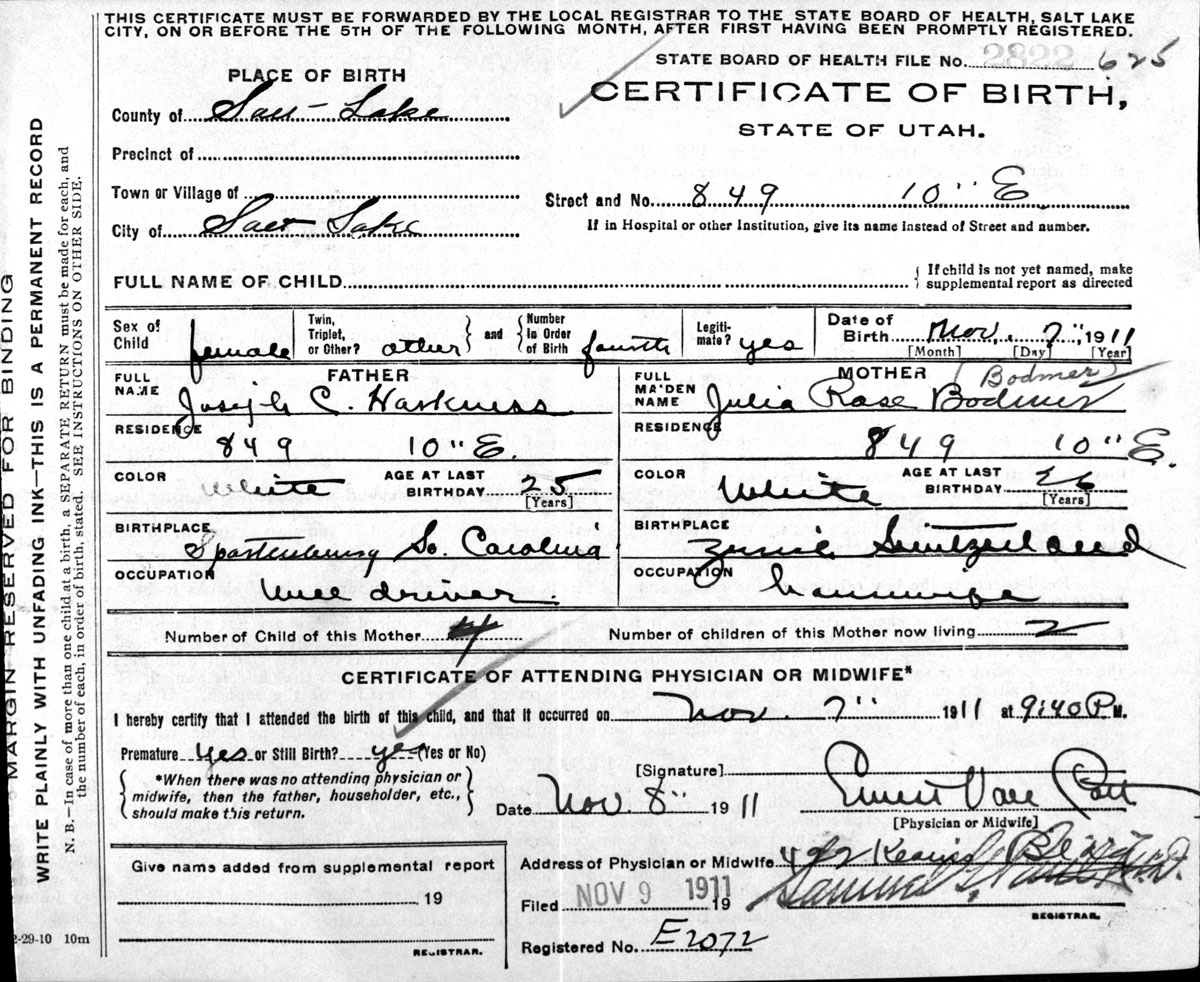 THIS CERTIFICATE MUST BE FORWARDED BY THE LOCAL REGISTRAR TO THE STATE BOARD OF HEALTH, SALT LAKE
CITY, ON OR BEFORE THE 5TH OF THE FOLLOWING MONTH, AFTER FIRST HAVING BEEN PROMPTLY REGISTERED.
STATE BOARD OF HEALTH FILE No. 2822 625
PLACE OF BIRTH
CERTIFICATE OF BIRTH,
STATE OF UTAH.
County of Salt Lake
Precinct of
Town or Village of
Street and No. 849 10" E
City of Salt Lake
If in Hospital or other Institution, give its name instead of Street and number.
FULL NAME OF CHILD
If child is not yet named, make
supplemental report as directed
Sex of Child female
Twin, Triplet, or Other? other
and
Number in Order of Birth fourth
Legiti- mate? yes
Date of Birth Nov. 7" 1911
[Month] [Day] [Year]
FATHER
FULL NAME Joseph C. Harkness
RESIDENCE 849 10" E.
COLOR White
AGE AT LAST BIRTHDAY 25
[Years]
BIRTHPLACE Spartenburg So. Carolina
OCCUPATION driver
MOTHER (Bodmer)
FULL MAIDEN NAME Julia Rose Bodmer
RESIDENCE 849 10" E.
COLOR White
AGE AT LAST BIRTHDAY 26
[Years]
BIRTHPLACE Switzerland
OCCUPATION housewife
Number of Child of this Mother 4
Number of children of this Mother now living 2
CERTIFICATE OF ATTENDING PHYSICIAN OR MIDWIFE*
I hereby certify that I attended the birth of this child, and that it occurred on Nov. 7" 1911 at 9:40 P.M.
Premature yes or Still Birth? yes (Yes or No)
*When there was no attending physician or
midwife, then the father, householder, etc.,
should make this return.
[Signature] Van Cott
Date Nov 8" 1911
[Physician or Midwife]
Give name added from supplemental report
19
REGISTRAR.
Address of Physician or Midwife Kearns
Filed NOV 9 1911 19
REGISTRAR.
Registered No. E2072
2-29-10 10m
MARGIN RESERVED FOR BINDING
WRITE PLAINLY WITH UNFADING INK—THIS IS A PERMANENT RECORD
N. B.—In case of more than one child at a birth, a SEPARATE RETURN must be made for each, and
the number of each, in order of birth, stated. SEE INSTRUCTIONS ON OTHER SIDE.